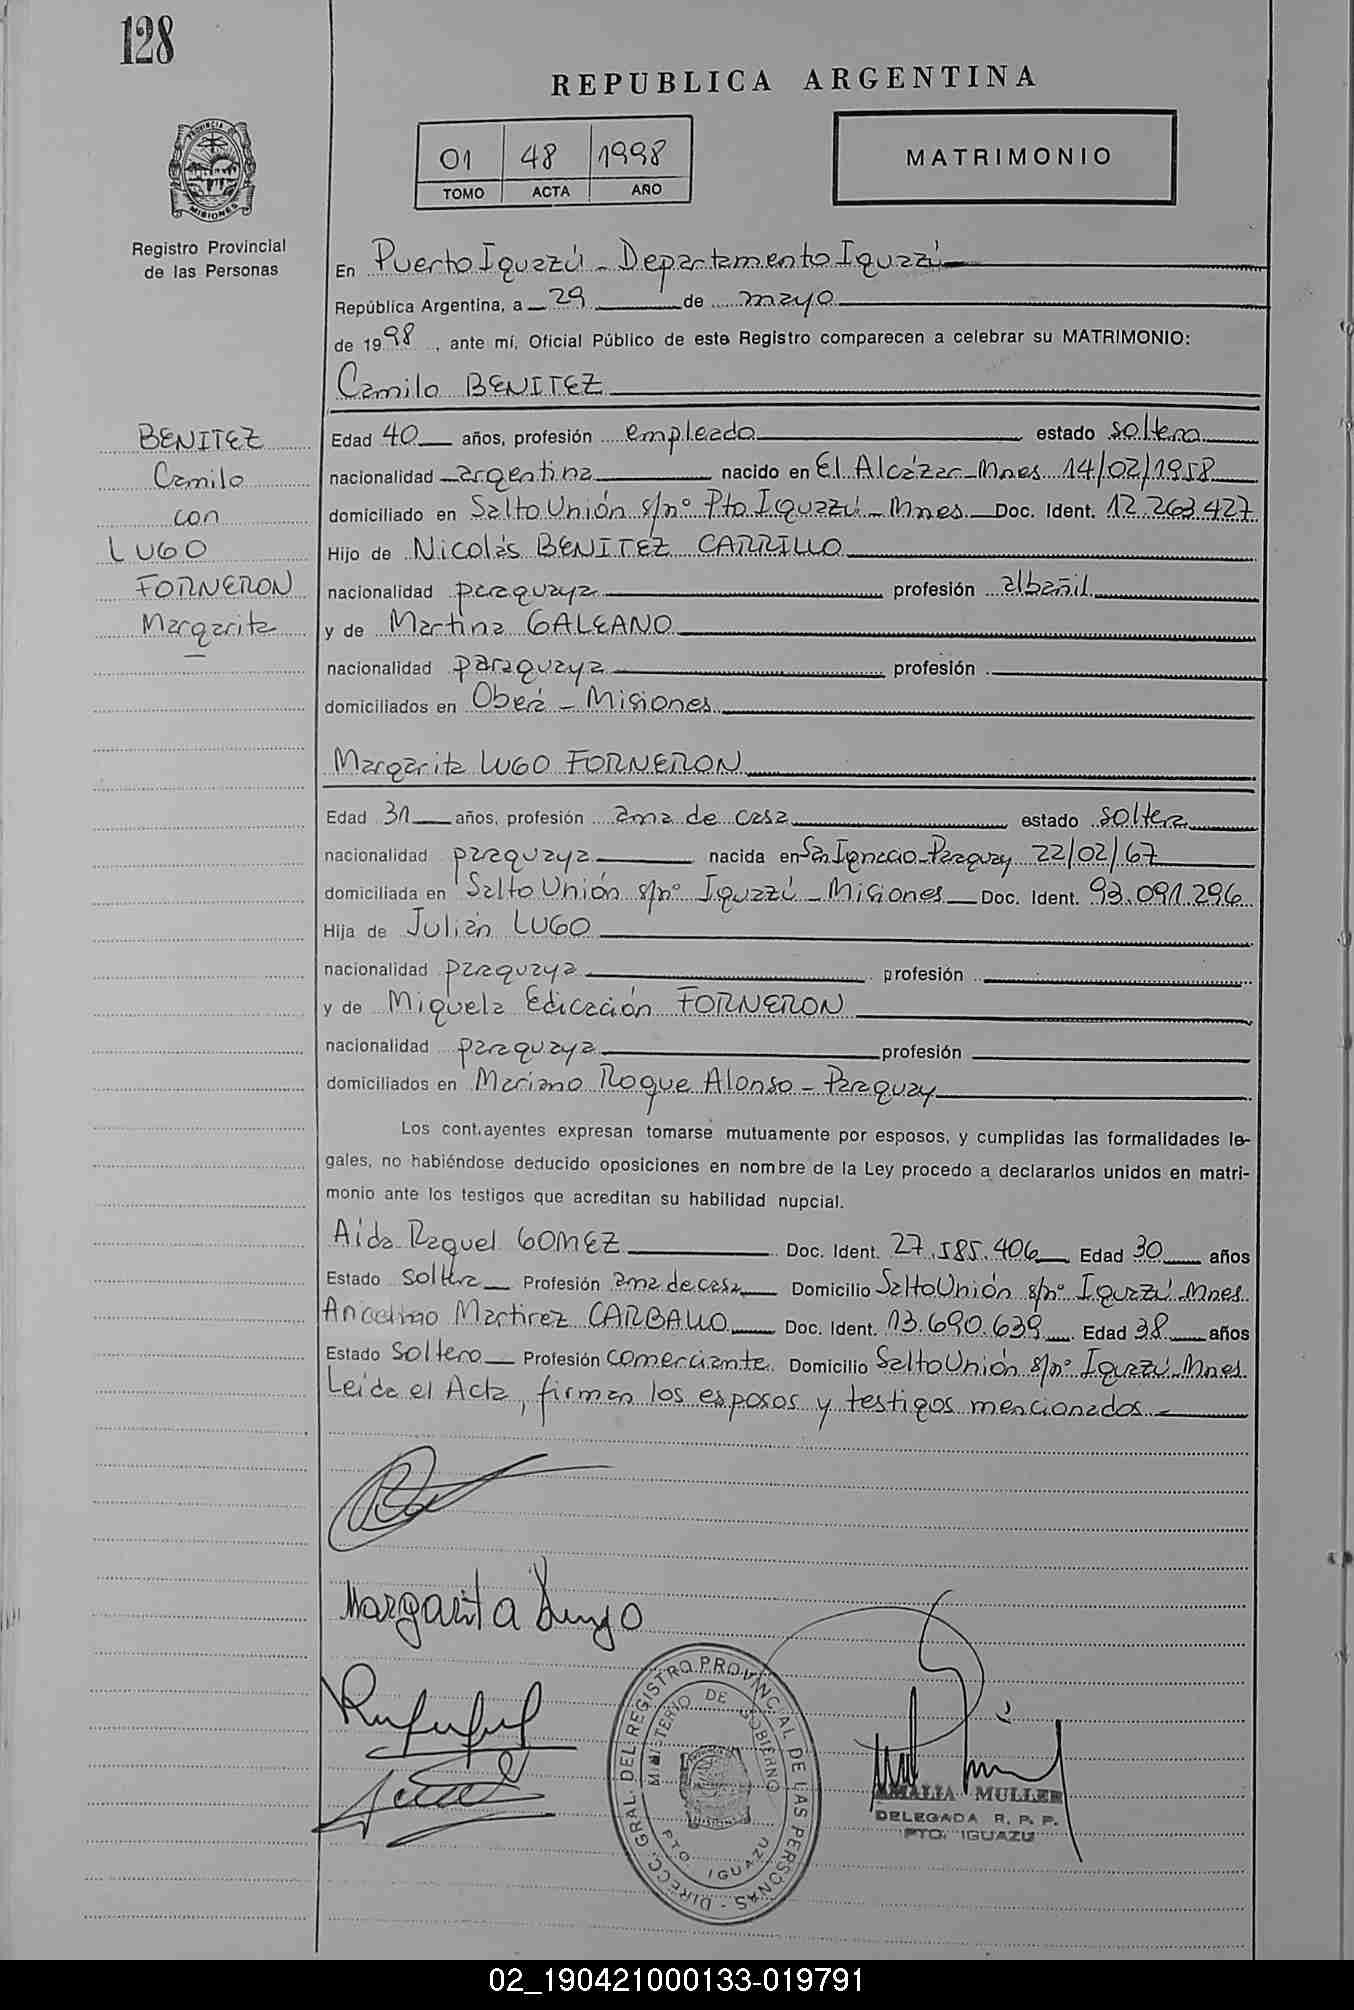 128
REPUBLICA ARGENTINA
01 48 1998
TOMO ACTA AÑO
MATRIMONIO
PROVINCIA DE
MISIONES
Registro Provincial
de las Personas
En Puerto Iguazú - Departamento Iguazú
República Argentina, a 29 de mayo
de 1998, ante mí, Oficial Público de este Registro comparecen a celebrar su MATRIMONIO:
Camilo BENITEZ
BENITEZ
Camilo
con
LUGO
FORNERON
Margarita
Edad 40 años, profesión empleado estado soltero
nacionalidad argentina nacido en El Alcázar - Mnes 14/02/1958
domiciliado en Salto Unión s/nº Pto Iguazú - Mnes Doc. Ident. 12.263.427
Hijo de Nicolás BENITEZ CARRILLO
nacionalidad paraguaya profesión albañil
y de Martina GALEANO
nacionalidad paraguaya profesión
domiciliados en Oberá - Misiones
Margarita LUGO FORNERON
Edad 31 años, profesión ama de casa estado soltera
nacionalidad paraguaya nacida en San Ignacio - Paraguay 22/02/67
domiciliada en Salto Unión s/nº Iguazú - Misiones Doc. Ident. 93.091.296
Hija de Julián LUGO
nacionalidad paraguaya profesión
y de Miguela Edicación FORNERON
nacionalidad paraguaya profesión
domiciliados en Mariano Roque Alonso - Paraguay
Los cont.ayentes expresan tomarse mutuamente por esposos, y cumplidas las formalidades le-
gales, no habiéndose deducido oposiciones en nombre de la Ley procedo a declararlos unidos en matri-
monio ante los testigos que acreditan su habilidad nupcial.
Aida Raquel GOMEZ Doc. Ident. 27.585.406 Edad 30 años
Estado soltera Profesión ama de casa Domicilio Salto Unión s/nº Iguazú Mnes
Martirez CARBALLO Doc. Ident. 13.690.639 Edad 38 años
Estado soltero Profesión comerciante Domicilio Salto Unión s/nº Iguazú - Mnes
Leída el Acta, firman los esposos y testigos mencionados.-
Margarita Lugo
DIRECC. GRAL. DEL REGISTRO PROVINCIAL DE LAS PERSONAS -
MINISTERIO DE GOBIERNO
PTO. IGUAZU
AMALIA MULLER
DELEGADA R. P. P.
PTO. IGUAZU
02_190421000133-019791